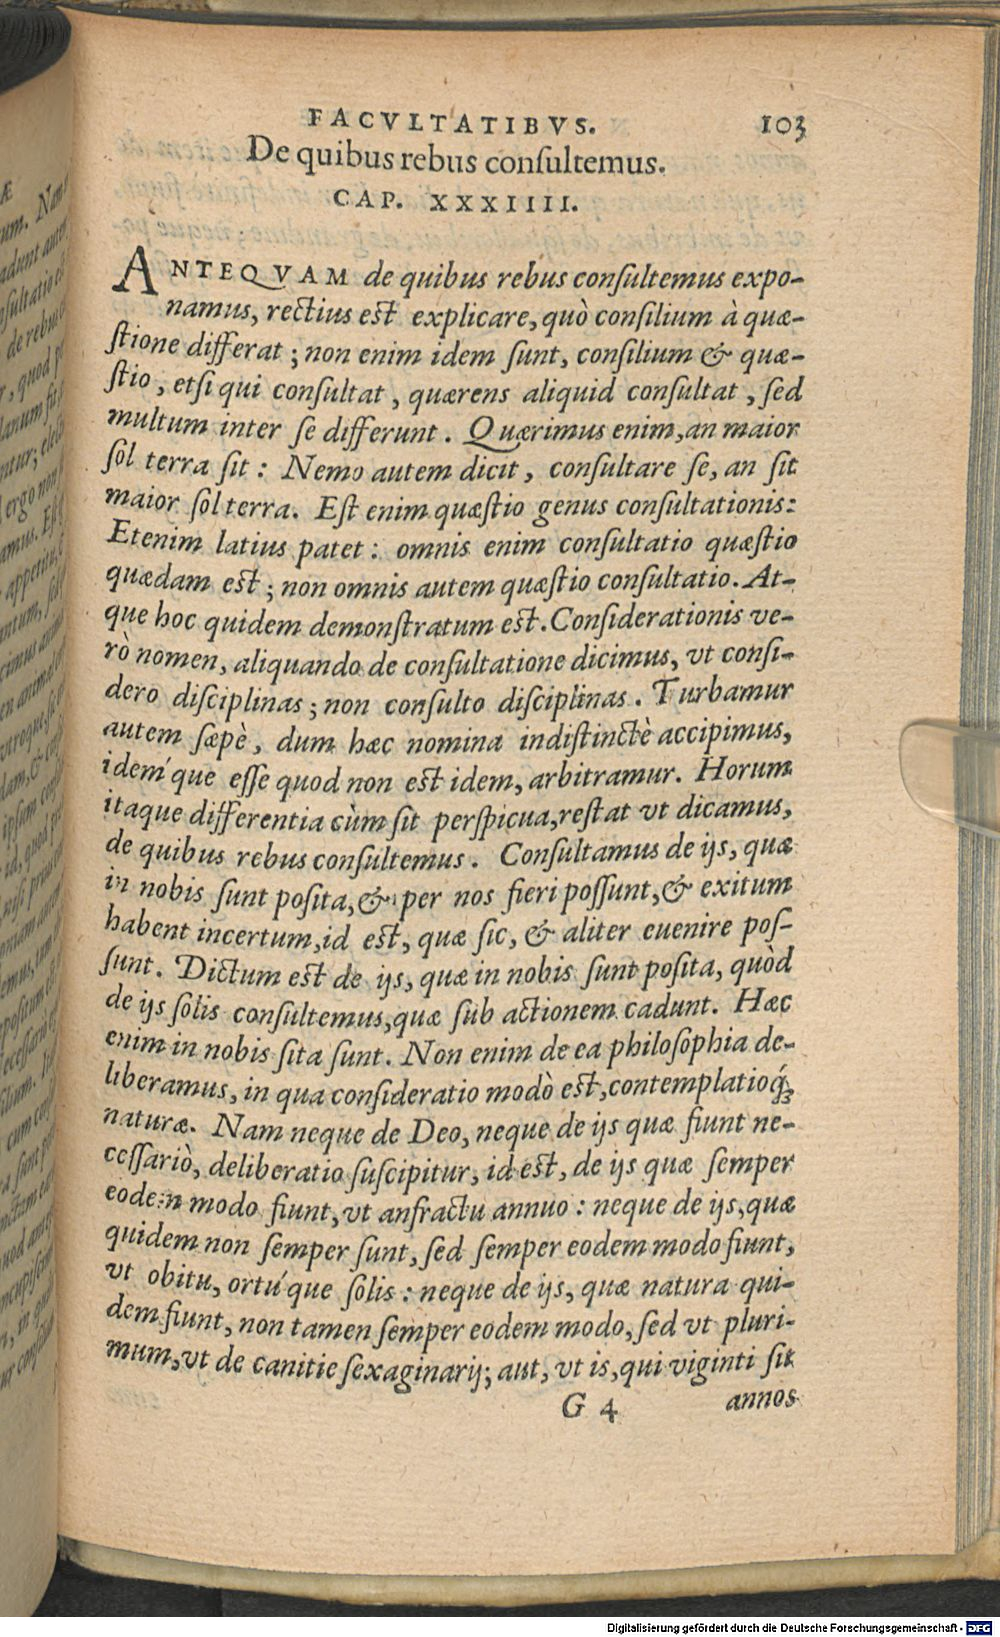 FACVLTATIBVS. 103
De quibus rebus conſultemus.
CAP. XXXIIII.
ANTEQVAM de quibus rebus conſultemus expo-
namus, rectius est explicare, quò conſilium à quæ-
ſtione differat; non enim idem ſunt, conſilium & quæ-
ſtio, etſi qui conſultat, quærens aliquid conſultat, ſed
multum inter ſe differunt. Quærimus enim, an maior
ſol terra ſit: Nemo autem dicit, conſultare ſe, an ſit
maior ſol terra. Eſt enim quæſtio genus conſultationis:
Etenim latius patet: omnis enim conſultatio quæſtio
quædam est; non omnis autem quæſtio conſultatio. At-
que hoc quidem demonſtratum est. Conſiderationis ve-
rò nomen, aliquando de conſultatione dicimus, vt conſi-
dero diſciplinas; non conſulto diſciplinas. Turbamur
autem ſæpè, dum hæc nomina indiſtinctè accipimus,
ideḿque eſſe quod non est idem, arbitramur. Horum
itaque differentia cùm ſit perſpicua, reſtat vt dicamus,
de quibus rebus conſultemus. Conſultamus de ijs, quæ
in nobis ſunt poſita, & per nos fieri poſſunt, & exitum
habent incertum, id est, quæ ſic, & aliter euenire poſ-
ſunt. Dictum est de ijs, quæ in nobis ſunt poſita, quòd
de ijs ſolis conſultemus, quæ ſub actionem cadunt. Hæc
enim in nobis ſita ſunt. Non enim de ea philoſophia de-
liberamus, in qua conſideratio modò est, contemplatioq́;
naturæ. Nam neque de Deo, neque de ijs quæ fiunt ne-
ceſſariò, deliberatio ſuſcipitur, id est, de ijs quæ ſemper
eodem modo fiunt, vt anfractu annuo: neque de ijs, quæ
quidem non ſemper ſunt, ſed ſemper eodem modo fiunt,
vt obitu, ortú que ſolis: neque de ijs, quæ natura qui-
dem fiunt, non tamen ſemper eodem modo, ſed vt pluri-
mum, vt de canitie ſexaginarij; aut, vt is, qui viginti ſit
G 4 annos
Digitalisierung gefördert durch die Deutsche Forschungsgemeinschaft - DFG